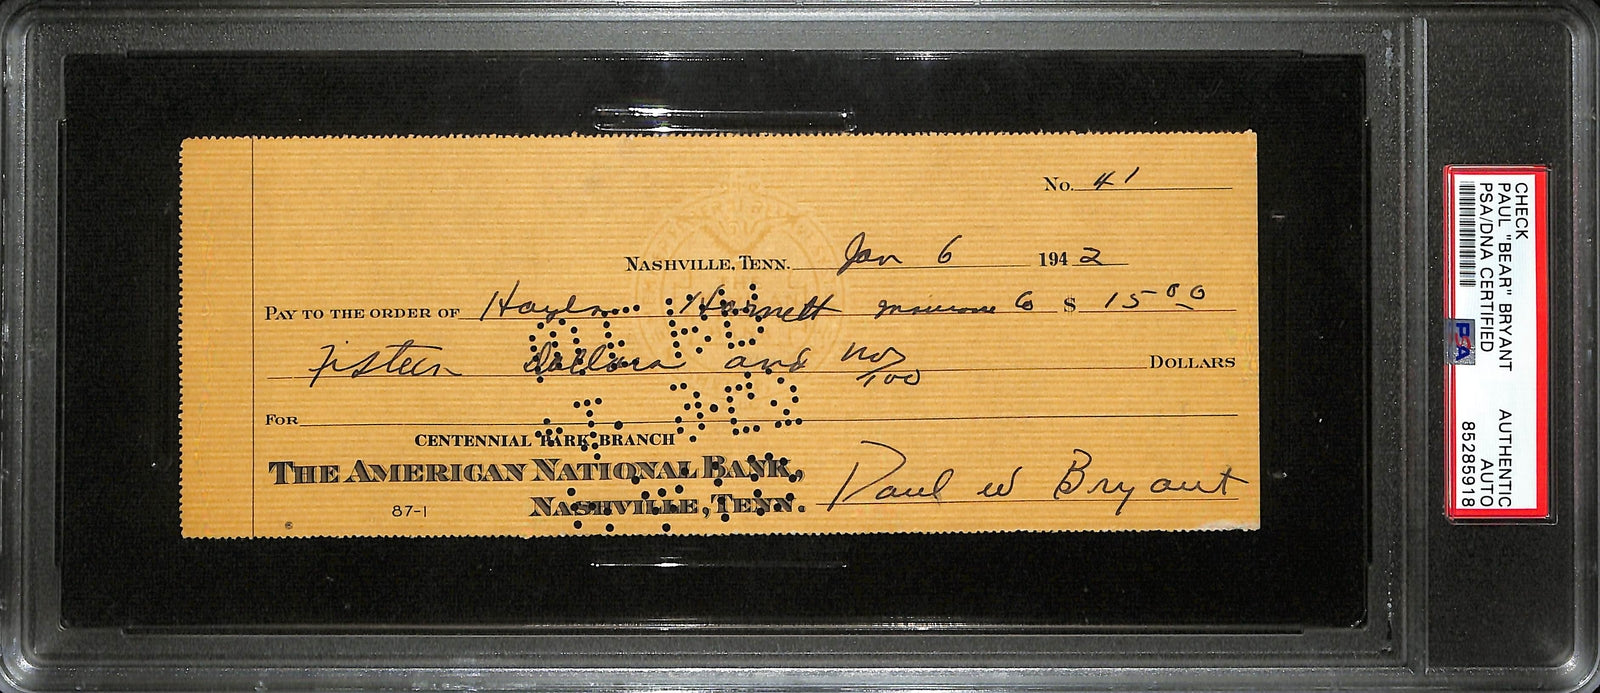 No. 41
NASHVILLE, TENN. Jan 6 1942
PAY TO THE ORDER OF $ 15 00
Fifteen Dollars and no/100 DOLLARS
FOR
CENTENNIAL PARK BRANCH
THE AMERICAN NATIONAL BANK,
NASHVILLE, TENN.
Paul W Bryant
87-1
CHECK
PAUL "BEAR" BRYANT
PSA/DNA CERTIFIED
AUTHENTIC
AUTO
85285918
PSA